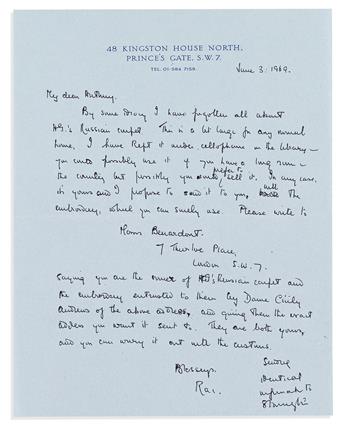 48 KINGSTON HOUSE NORTH,
PRINCE'S GATE, S.W. 7.
TEL. 01-584 7158.
June 3. 1969.
My dear Anthony.
By some I have forgotten all about
H.G.'s Russian carpet. This is a bit large for any normal
home. I have kept it under cellophane in the library –
you could possibly use it if you have a long room –
the country but possibly you would prefer to sell it. In any case,
it's yours and I propose to send it to you, with the
embroidery, which you can surely use. Please write to
Mons Benardout.
7 Thurloe Place,
London S.W. 7.
saying you are the owner of H.G.'s Russian carpet and
the embroidery entrusted to them by Dame Cicily
Andrews of the above address, and giving them the exact
address you want it sent to. They are both yours,
and you can worry it out with the customs.
Blessings.
Rac.
Sending
identical
airmail to